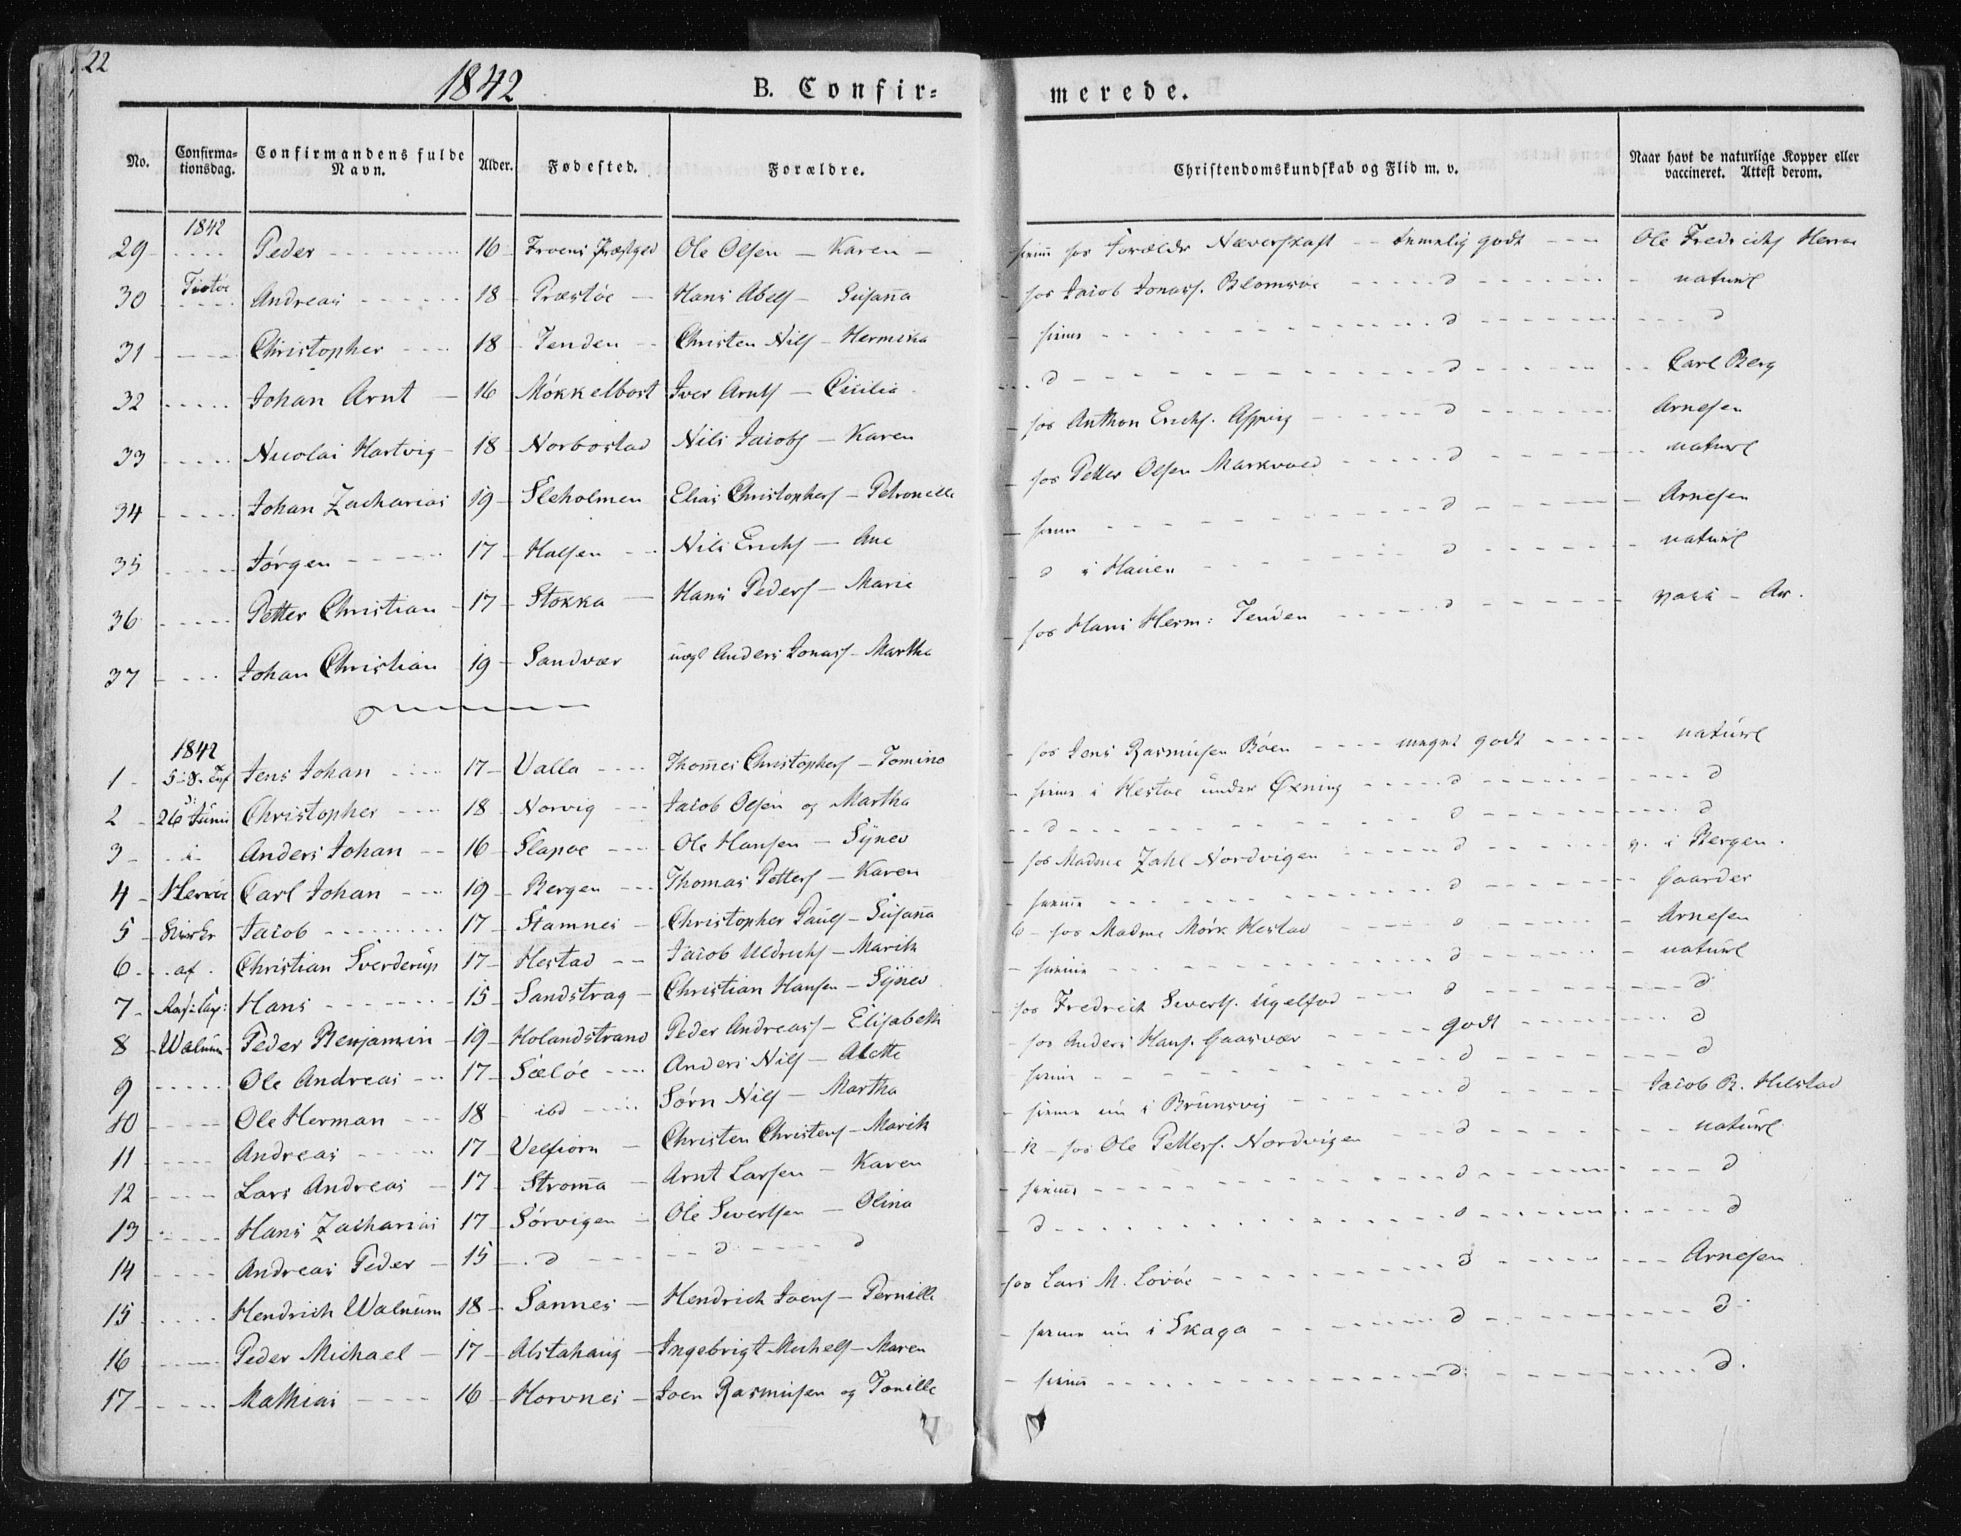 22
1842
B. Confir=
merede.
No. Confirma-tionsdag. Confirmandens fulde Navn. Alder. Fødested. Forældre. Christendomskundskab og Flid m. v. Naar havt de naturlige Kopper eller vaccineret. Attest derom.
1842
29 Peder 16 Ole Olsen — Karen hos Forældr temmelig godt Ole Fredrichs
30 Andreas 18 Præstøe Hans Abels Susanna hos Jacob Jonass. Blomsøe d naturl
31 Christopher 18 Tenden Christen Nils — Hermina d d
32 Johan Arnt 16 Møkkelbost Iver Arnts — Cicilia d d Carl Berg
33 Nicolai Hartvig 18 Norbostad Nils Jacobs — Karen hos Anthon Erichs. d Arnesen
34 Johan Zacharias 19 Sleholmen Elias Christophers — Petronelle hos Petter Olsen Markvold d naturl
35 Jørgen 17 Halsen Nils Erichs — Ane d Arnesen
36 Petter Christian 17 Stokka Hans Peders — Marie d i Hauen d naturl
37 Johan Christian 19 Sandvær uægt Anders Jonass — Martha hos Hans Herm: Tenden d vacc — Ar.
1842
1 Jens Johan 17 Valla Thomes Christophers — Tomine hos Jens Rasmusen Bøen meget godt naturl
2 26 Junii Christopher 18 Norvig Jacob Olsen og Martha i Hestøe under Øxning d d
3 i Anders Johan 16 Slapøe Ole Hansen — Synev d d d
4 Herøe Carl Johan 19 Bergen Thomas Petters — Karen hos Madme Zahl Nordvigen d v. i Bergen.
5 Kirke Jacob 17 Stamnes Christopher Pauls — Susanna d Gaarder
6 af Christian Sverderup 17 Hestad Jacob Uldrichs — Marith hos Madme Mørk Hestad d Arnesen
7 Hans 15 Sandstrag Christian Hansen — Synev d naturl
8 Walnum Peder Benjamin 19 Holandstrand Peder Andreass — Elisabeth hos Fredrich Siverts. Ugelfod d d
9 Ole Andreas 17 Sæløe Anders Nils — Alette hos Anders Hans. Gaasvær godt d
10 Ole Herman 18 ibd Sørn Nils — Martha d d
11 Andreas 17 Velfiorn Christen Christens — Marith nu i Brunsvig d Jacob R. Hilstad
12 Lars Andreas 17 Stroma Arnt Larsen — Karen hos Ole Petters. Nordvigen d naturl
13 Hans Zacharias 17 Sørvigen Ole Sivertsen — Olina d d
14 Andreas Peder 15 d d d d d d
15 Hendrich Walnum 18 Sannes Hendrich Joens — Pernille hos Lars M. Lovøe d Arnesen
16 Peder Michael 17 Alstahaug Ingebrigt Michels — Maren nu i Skaga d d
17 Mathias 16 Horvnes Joen Rasmusen og Tonille d d